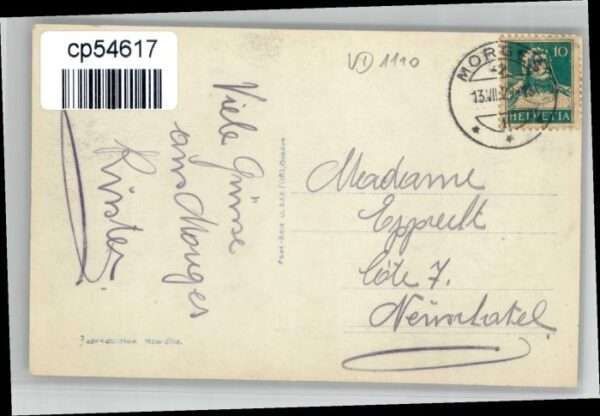 cp54617
VD 1110
MORGES
13.VII
10
HELVETIA
Viele Grüsse
aus Morges
Madame
Epprecht
Côte 7.
Neuchatel.